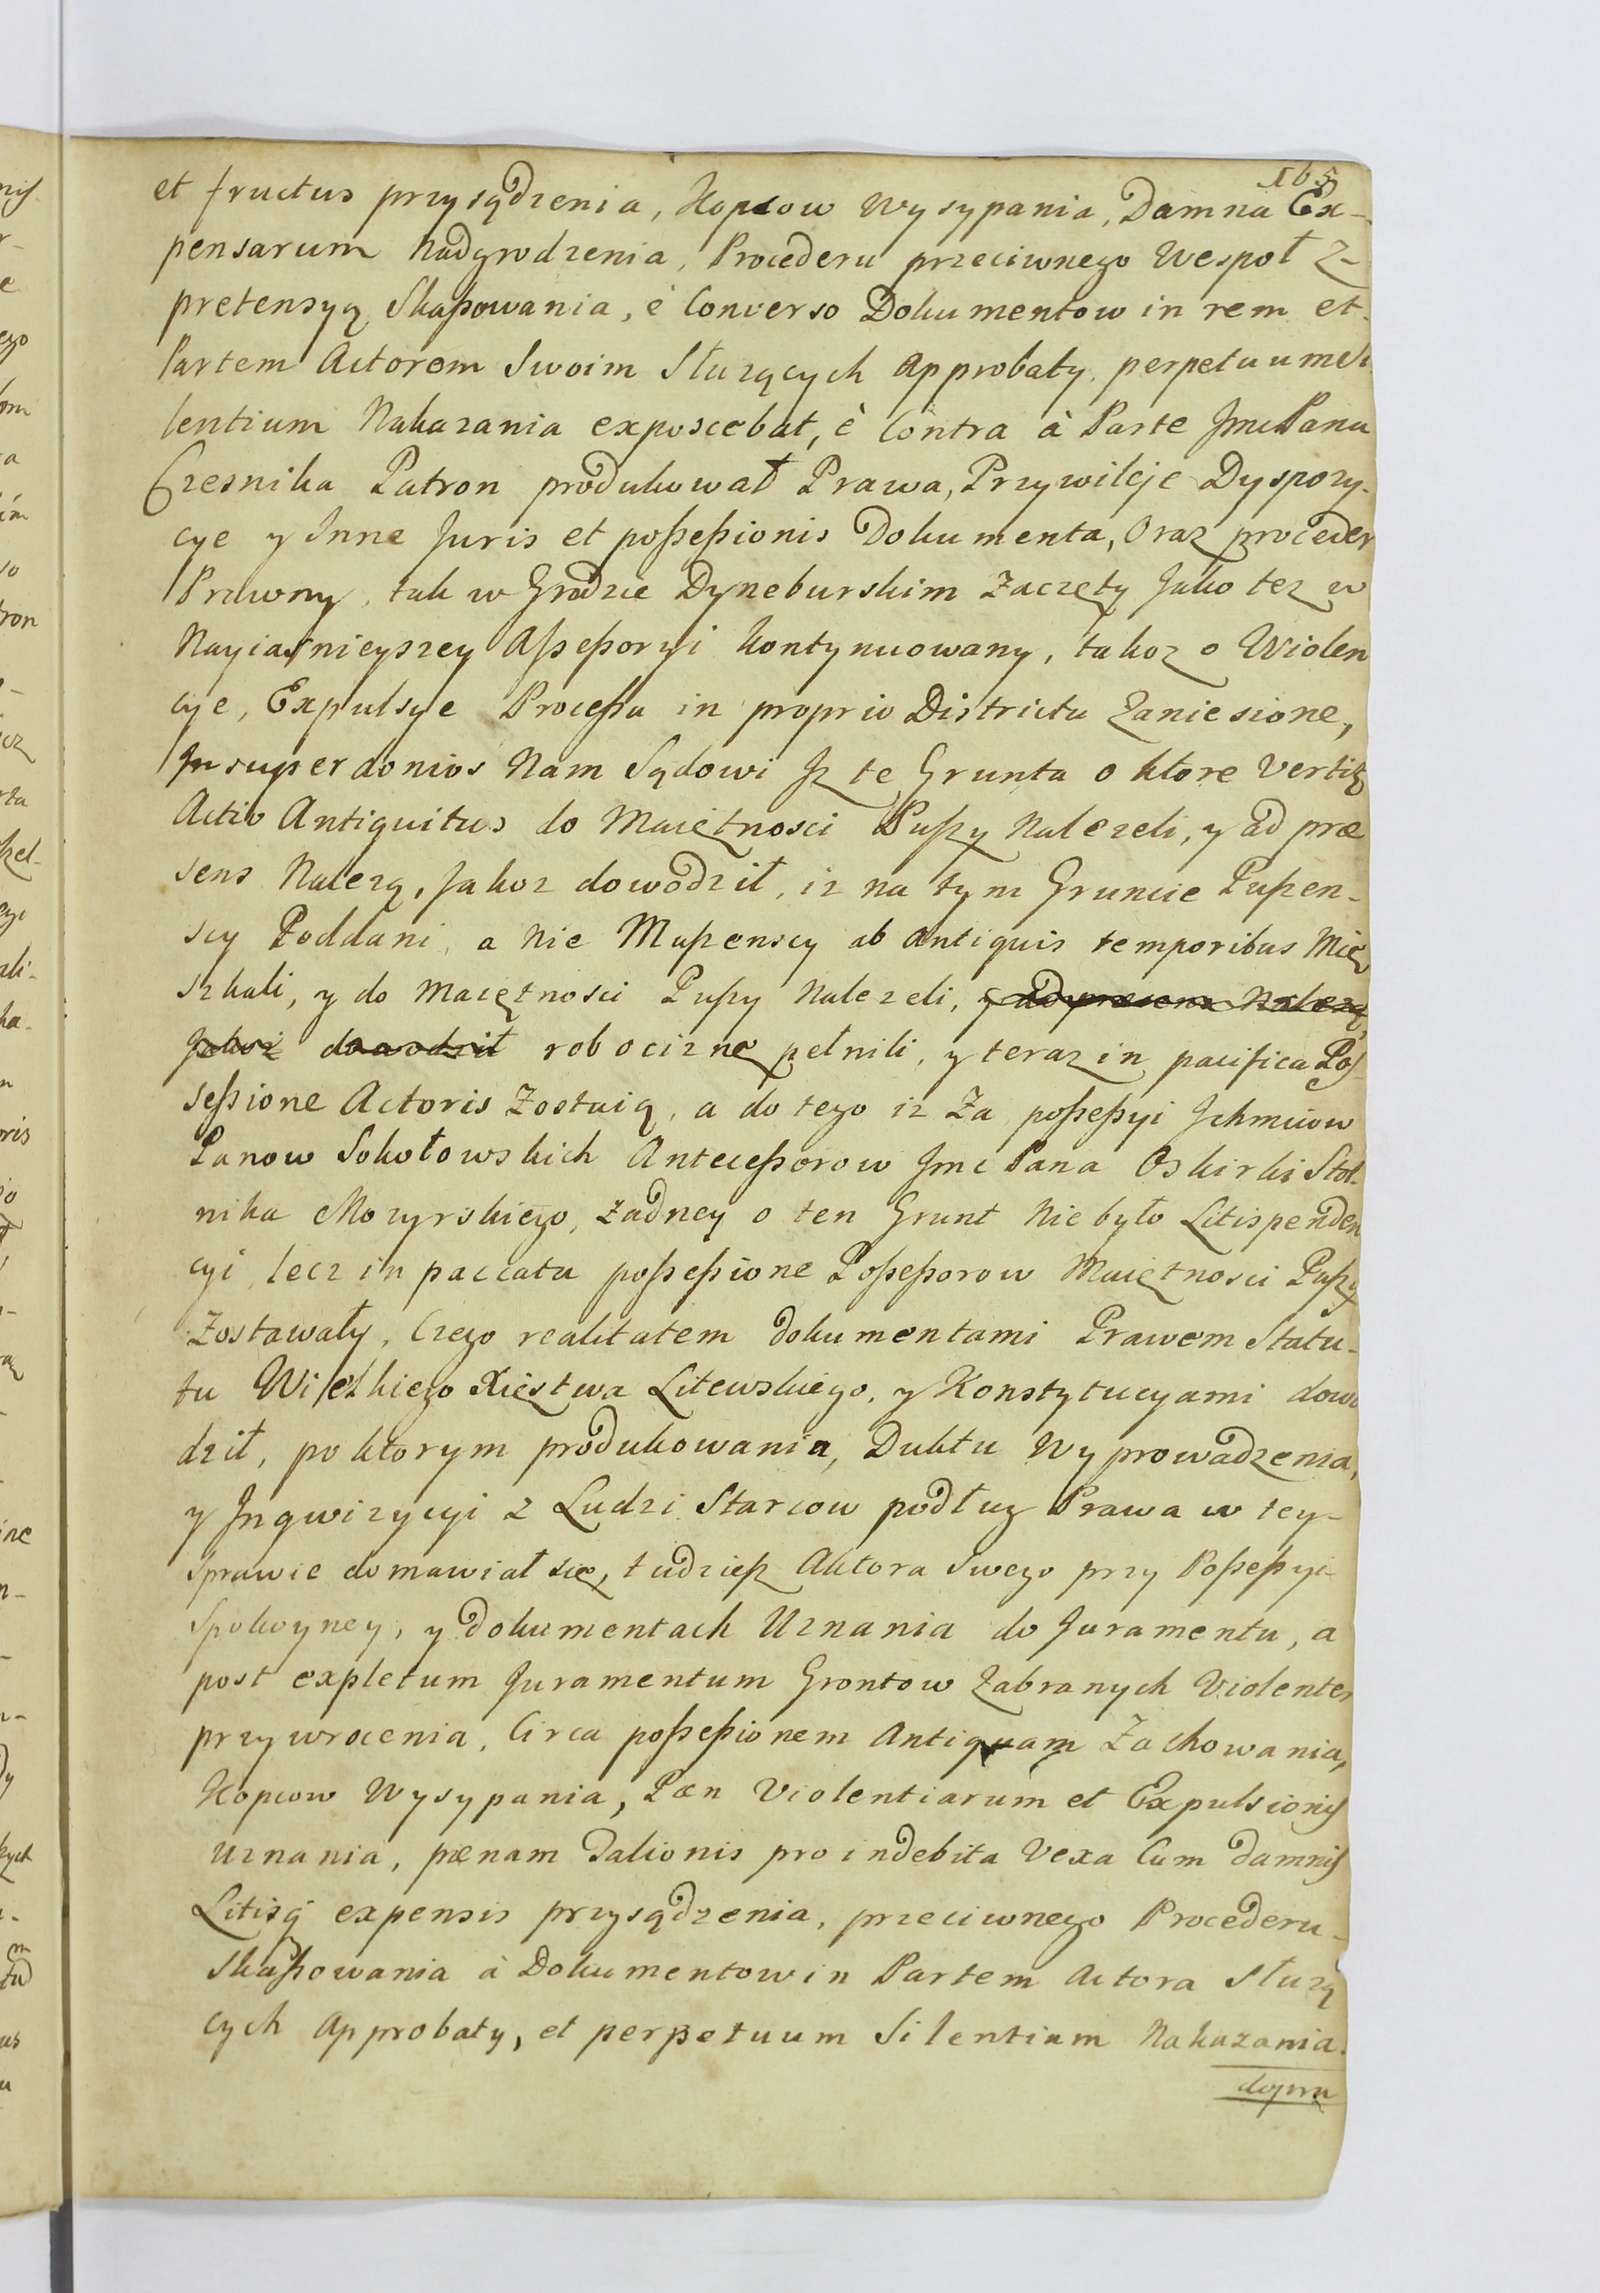 165
et fructus przysądzenia, Kopcow Wysypania, Damna Ex-
pensarum Nadgrodzenia, Procederu przeciwnego Wespoł z-
pretensyą Skaßowania, è Converso Dokumentow in rem et-
Partem Actorem Swoim Służących Approbaty perpetuum Si
lentium Nakazania exposcebat, è Contra à Parte Jmc Pana
Czesnika Patron produkował Prawa, Przywileje Dyspozy-
cye y Inne Juris et poßeßionis Dokumenta, Oraz proceder
Prawny, tak w Grodzie Dyneburskim Zaczęty Jako tez w
Nayiasnieyszey Aßeßoryi kontynuowany, takoz o Violen
cye, Expulsye Proceßa in proprio Districtu Zaniesione,
Insuper donios Nam Sądowi Jz te Grunta o ktore Vertitr
Actio Antiquitus do Maiętnosci Pußy Nalezeli, y ad præ
sens Nalezą, Jakoz dowodził, iz na tym Gruncie Pußen-
scy Poddani, a Nie Mußenscy ab antiquis temporibus Mię
szkali, y do Maiętnosci Pußy Nalezeli, y ad præsens Nalezą,
Jakoz dowodził robociznę pełnili, y teraz in pacifica Pos-
seßione Actoris Zostaią, a do tego iz Za poßeßyi Jchmciow
Panow Sokołowskich Anteceßorow Jmc Pana Oskirki Stol-
nika Mozyrskiego, zadney o ten Grunt Nie było Litispenden
cyi, lecz in paccata poßeßione Poßeßorow Maiętnosci Pußy
Zostawały, Czego realitatem dokumentami Prawem Statu-
tu Wielkiego Xięstwa Litewskiego, y Konstytucyami dowo
dził, po ktorym produkowania, Duktu Wyprowadzenia,
y Jnqwizycyi z Ludzi Starcow podług Prawa w tey-
sprawie domawiał się, tudzieß Aktora swego przy Poßeßyi-
Spokoyney, y dokumentach Uznania do Juramentu, a
post expletum Juramentum Grontow Zabranych Violenter
przywrocenia, Circa poßeßionem Antiquam Zachowania,
Kopcow Wysypania, Pæn Violentiarum et Expulsionis
Uznania, pænam Talionis pro indebita Vexa Cum damnis
Litisq expensis przysądzenia, przeciwnego Procederu-
Skaßowania à Dokumentow in Partem Actora Służą
cych Approbaty, et perpetuum Silentium Nakazania.